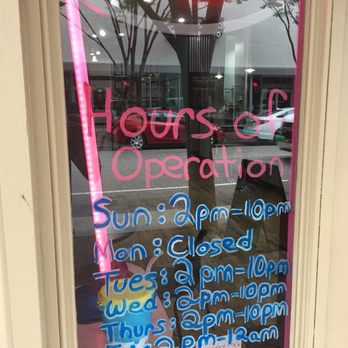 Hours of
Operation
Sun: 2pm-10pm
Mon: Closed
Tues: 2pm-10pm
Wed: 2pm-10pm
Thurs: 2pm-10pm
2pm-12am